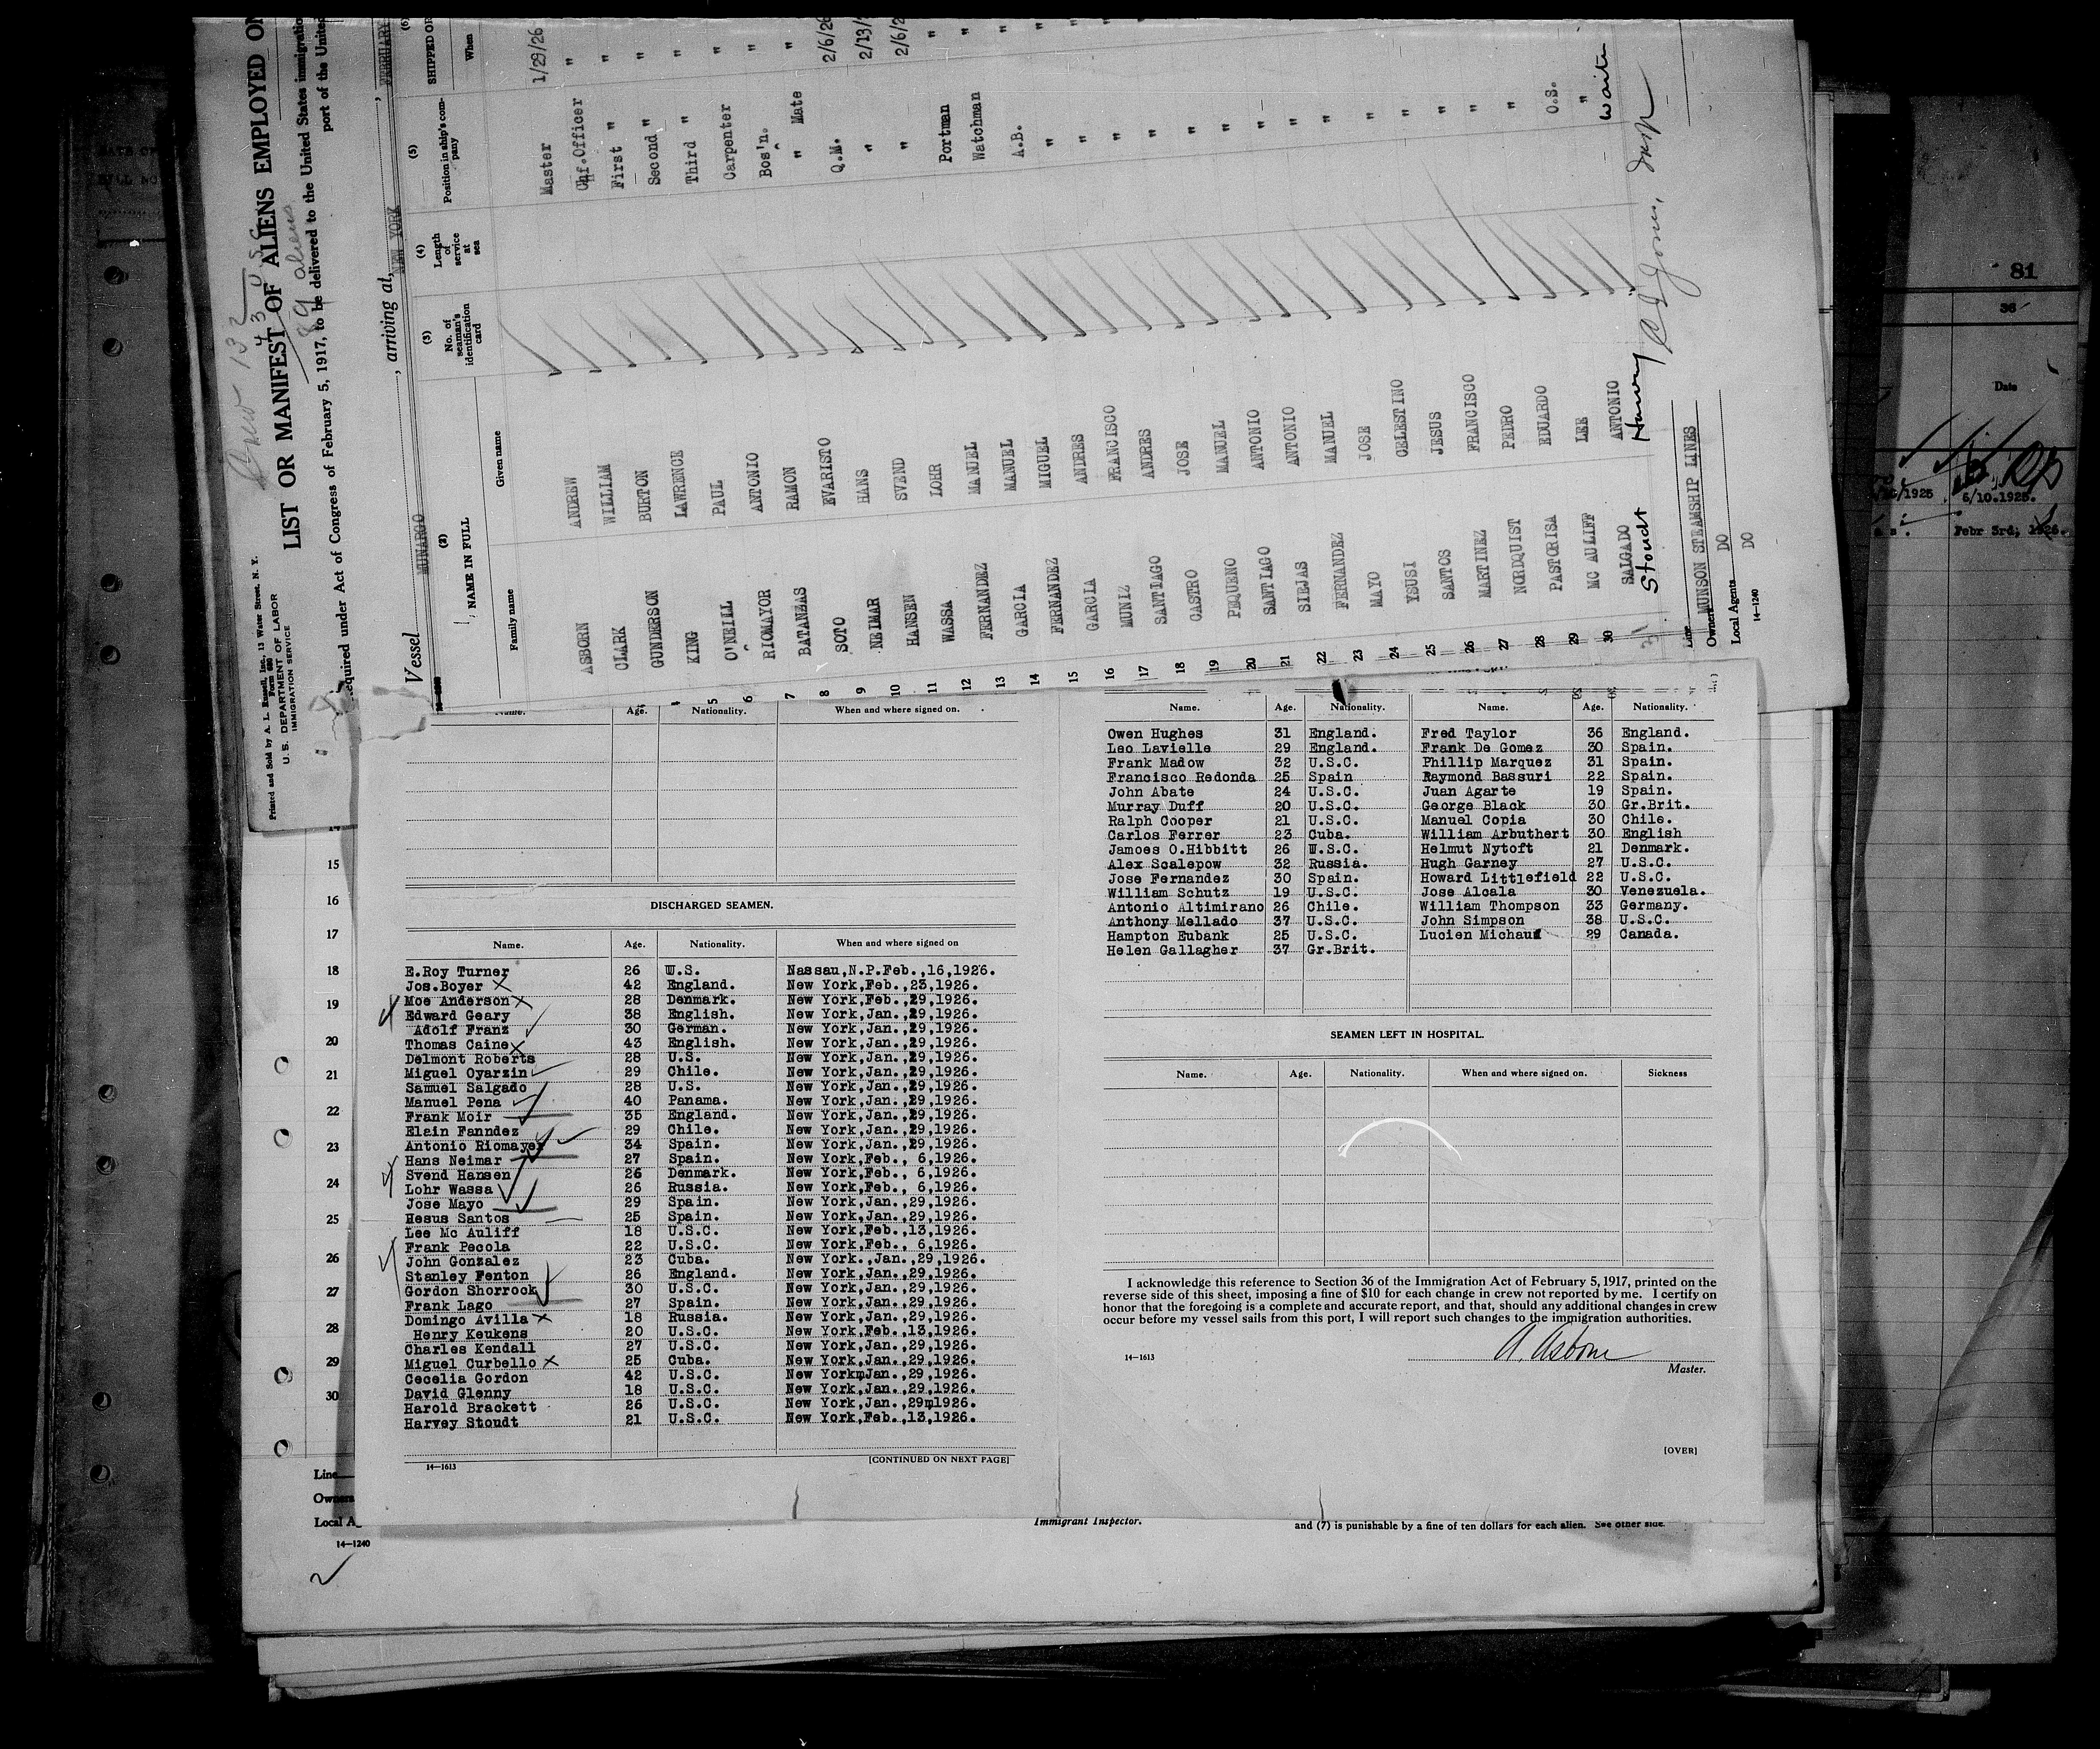 Crew 132
43 USC
89 aliens
Printed and Sold by A. L. Russell, Inc., 13 Water Street, N. Y.
Form 680
U. S. DEPARTMENT OF LABOR
IMMIGRATION SERVICE
LIST OR MANIFEST OF ALIENS EMPLOYED ON
equired under Act of Congress of February 5, 1917, to be delivered to the United States immigratio
port of the United
Vessel MUNARGO, arriving at NEW YORK, FEBRUARY
(2) (3) (4) (5) (6)
NAME IN FULL No. of seaman's identification card Length of service at sea Position in ship's company SHIPPED OR
Family name Given name When
ASBORN ANDREW Master 1/29/26
CLARK WILLIAM Chf.Officer "
GUNDERSON BURTON First " "
KING LAWRENCE Second " "
5 O'NEILL PAUL Third " "
6 RIOMAYOR ANTONIO Carpenter "
7 BATANZAS RAMON Bos'n. "
8 SOTO EVARISTO " Mate "
9 NEIMAR HANS Q.M. 2/6/26
10 HANSEN SVEND " 2/13/
11 WASSA LOHR " 2/6/2
12 FERNANDEZ MANUEL Portman "
13 GARCIA MANUEL Watchman "
14 FERNANDEZ MIGUEL A.B. "
15 GARCIA ANDRES " "
16 MUNIZ FRANCISCO " "
17 SANTIAGO ANDRES " "
18 CASTRO JOSE "
19 PEQUENO MANUEL "
20 SANTIAGO ANTONIO "
21 SIEJAS ANTONIO "
22 FERNANDEZ MANUEL "
23 MAYO JOSE "
24 YSUSI CELESTINO "
25 SANTOS JESUS "
26 MARTINEZ FRANCISCO "
27 NORDQUIST PEDRO "
28 PASTORISA EDUARDO "
29 MC AULIFF LEE O.S.
30 SALGADO ANTONIO "
31 Stoudt Harvey Waiter
Line MUNSON STEAMSHIP LINES
Owners DO
Local Agents DO
14—1240
Name. Age. Nationality. When and where signed on.
DISCHARGED SEAMEN.
Name. Age. Nationality. When and where signed on
E.Roy Turner 26 W.S. Nassau,N.P.Feb.,16,1926.
Jos.Boyer 42 England. New York,Feb.,23,1926.
Moe Anderson 28 Denmark. New York,Feb.,29,1926.
Edward Geary 38 English. New York,Jan.,29,1926.
Adolf Franz 30 German. New York,Jan.,29,1926.
Thomas Caine 43 English. New York,Jan.,29,1926.
Delmont Roberts 28 U.S. New York,Jan.,29,1926.
Miguel Oyarzin 29 Chile. New York,Jan.,29,1926.
Samuel Salgado 28 U.S. New York,Jan.,29,1926.
Manuel Pena 40 Panama. New York,Jan.,29,1926.
Frank Moir 35 England. New York,Jan.,29,1926.
Elain Fanndez 29 Chile. New York,Jan.,29,1926.
Antonio Riomayer 34 Spain. New York,Jan.,29,1926.
Hans Neimar 27 Spain. New York,Feb., 6,1926.
Svend Hansen 26 Denmark. New York,Feb., 6,1926.
Lohr Wassa 26 Russia. New York,Feb., 6,1926.
Jose Mayo 29 Spain. New York,Jan.,29,1926.
Hesus Santos 25 Spain. New York,Jan.,29,1926.
Lee Mc Auliff 18 U.S.C. New York,Feb.,13,1926.
Frank Pecola 22 U.S.C. New York,Feb., 6,1926.
John Gonzalez 23 Cuba. New York.,Jan.,29,1926.
Stanley Fenton 26 England. New York,Jan.,29,1926.
Gordon Shorrook 30 U.S.C. New York,Jan.,29,1926.
Frank Lago 27 Spain. New York,Jan.,29,1926.
Domingo Avilla 18 Russia. New York,Jan.,29,1926.
Henry Keukens 20 U.S.C. New York,Feb.,13,1926.
Charles Kendall 27 U.S.C. New York,Jan.,29,1926.
Miguel Curbello 25 Cuba. New York,Jan.,29,1926.
Cecelia Gordon 42 U.S.C. New YorkmJan.,29,1926.
David Glenny 18 U.S.C. New York,Jan.,29,1926.
Harold Brackett 26 U.S.C. New York,Jan.,29m1926.
Harvey Stoudt 21 U.S.C. New York,Feb.,13,1926.
14—1613 [CONTINUED ON NEXT PAGE]
Name. Age. Nationality. Name. Age. Nationality.
Owen Hughes 31 England. Fred Taylor 36 England.
Leo Lavielle 29 England. Frank De Gomez 30 Spain.
Frank Madow 32 U.S.C. Phillip Marquez 31 Spain.
Francisco Redonda 25 Spain Raymond Bassuri 22 Spain.
John Abate 24 U.S.C. Juan Agarte 19 Spain.
Murray Duff 20 U.S.C. George Black 30 Gr.Brit.
Ralph Cooper 21 U.S.C. Manuel Copia 30 Chile.
Carlos Ferrer 23 Cuba. William Arbuthert 30 English
Jamoes O.Hibbitt 26 W.S.C. Helmut Nytoft 21 Denmark.
Alex Scalepow 32 Russia. Hugh Garney 27 U.S.C.
Jose Fernandez 30 Spain. Howard Littlefield 22 U.S.C.
William Schutz 19 U.S.C. Jose Alcala 30 Venezuela.
Antonio Altimirano 26 Chile. William Thompson 33 Germany.
Anthony Mellado 37 U.S.C. John Simpson 38 U.S.C.
Hampton Eubank 25 U.S.C. Lucien Michaud 29 Canada.
Helen Gallagher 37 Gr.Brit.
SEAMEN LEFT IN HOSPITAL.
Name. Age. Nationality. When and where signed on. Sickness
I acknowledge this reference to Section 36 of the Immigration Act of February 5, 1917, printed on the
reverse side of this sheet, imposing a fine of $10 for each change in crew not reported by me. I certify on
honor that the foregoing is a complete and accurate report, and that, should any additional changes in crew
occur before my vessel sails from this port, I will report such changes to the immigration authorities.
A. Asborn
14—1613 Master.
[OVER]
15
16
17
18
19
20
21
22
23
24
25
26
27
28
29
30
Line
Owners
Local A
14—1240
Immigrant Inspector.
and (7) is punishable by a fine of ten dollars for each alien. See other side.
81
36
Date
/1925 6/10.1925.
Febr 3rd, 1926.